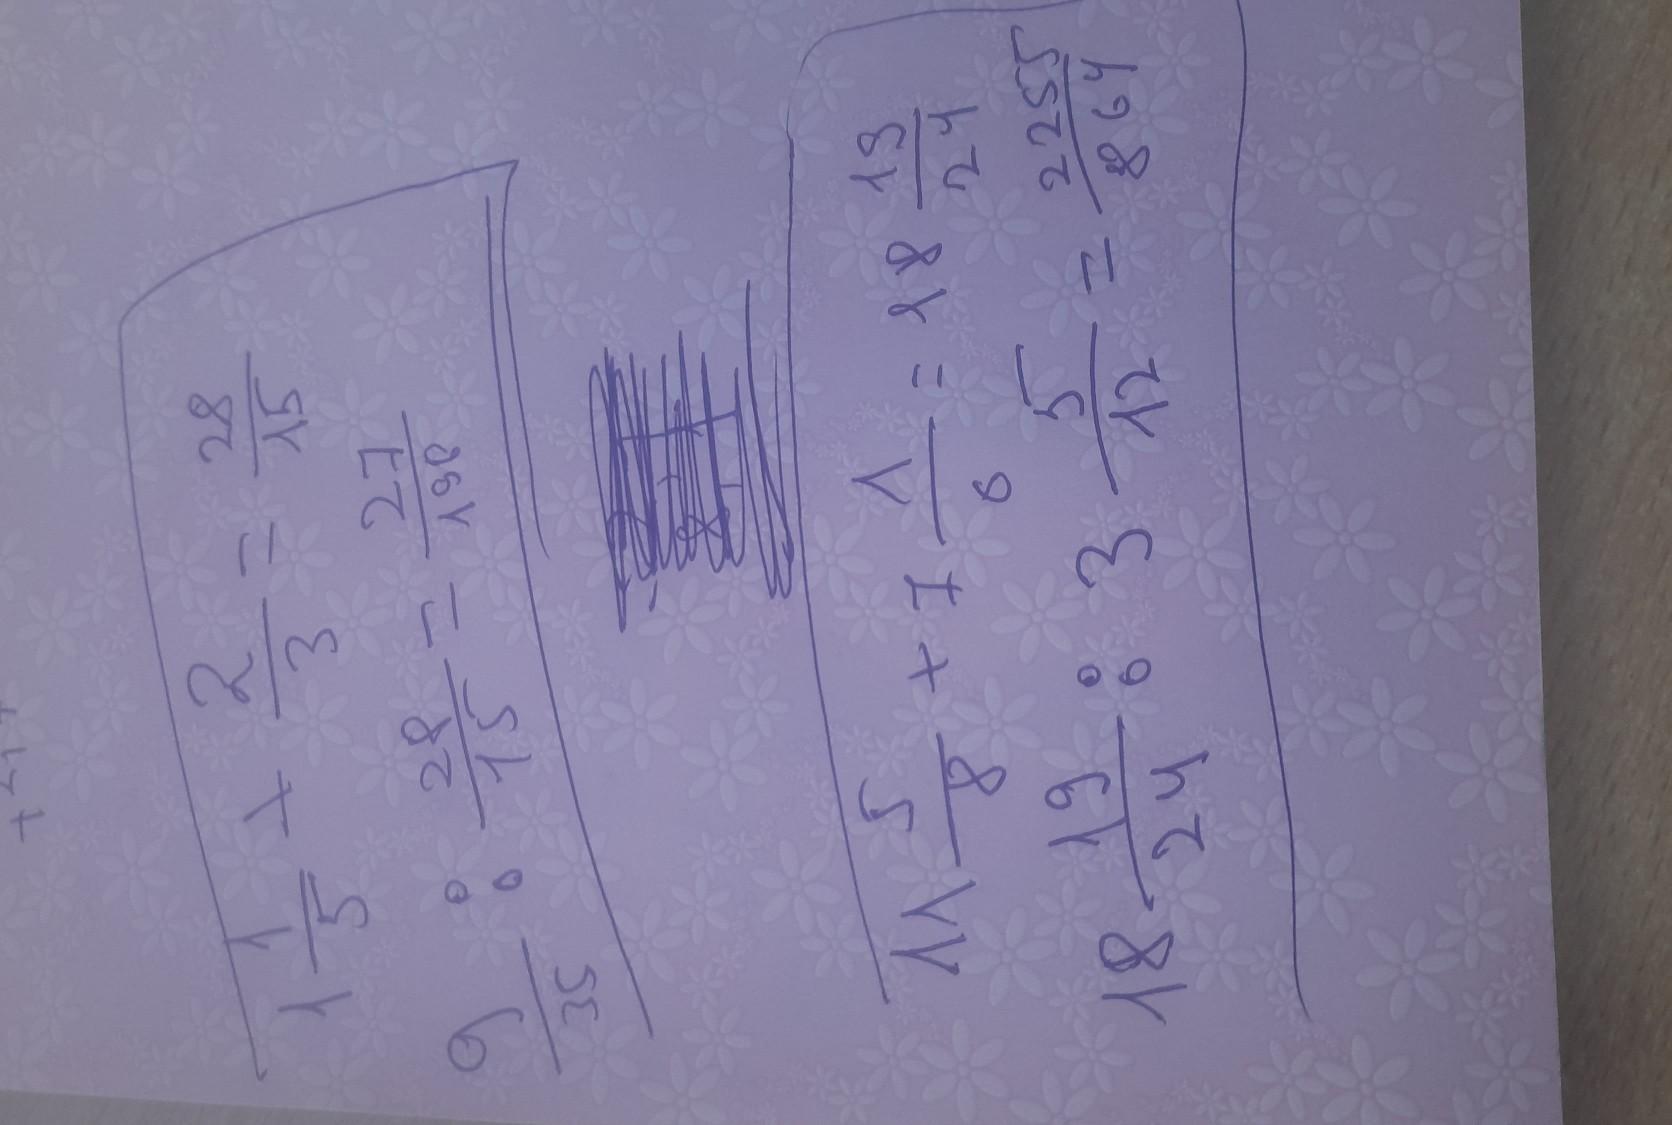 1 1/5 + 2/3 = 28/15
9/35 : 28/15 = 27/196
11 5/8 + 7 1/6 = 18 19/24
18 19/24 : 3 5/12 = 2255/864